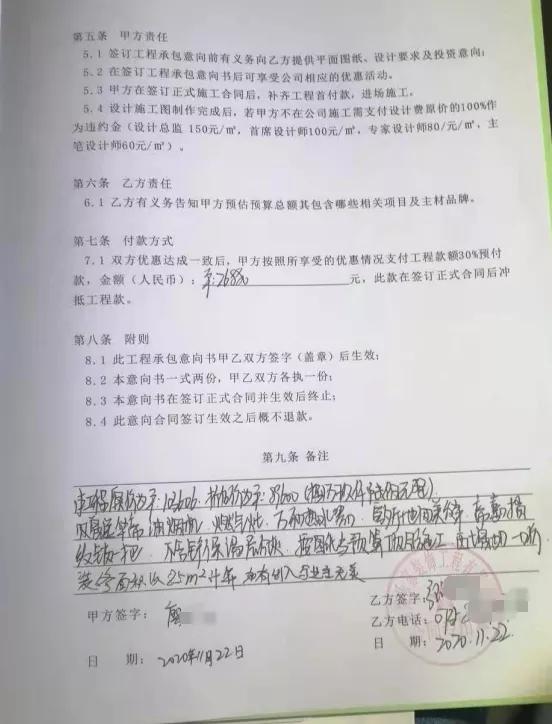 第五条 甲方责任
5.1 签订工程承包意向前有义务向乙方提供平面图纸、设计要求及投资意向;
5.2 在签订工程承包意向书后可享受公司相应的优惠活动。
5.3 甲方在签订正式施工合同后，补齐工程首付款，进场施工。
5.4 设计施工图制作完成后，若甲方不在公司施工需支付设计费原价的100%作
为违约金（设计总监 150元/㎡，首席设计师100元/㎡，专家设计师80/元/㎡，主
笔设计师60元/㎡）。
第六条 乙方责任
6.1 乙方有义务告知甲方预估预算总额其包含哪些相关项目及主材品牌。
第七条 付款方式
7.1 双方优惠达成一致后，甲方按照所享受的优惠情况支付工程款额30%预付
款，金额（人民币）： 元，此款在签订正式合同后冲
抵工程款。
第八条 附则
8.1 此工程承包意向书甲乙双方签字（盖章）后生效;
8.2 本意向书一式两份，甲乙双方各执一份;
8.3 本意向书在签订正式合同并生效后终止;
8.4 此意向合同签订生效之后概不退款。
第九条 备注
甲方签字:
乙方签字:
乙方电话:
日 期: 2020.11.22.
日 期: 2020年11月22日